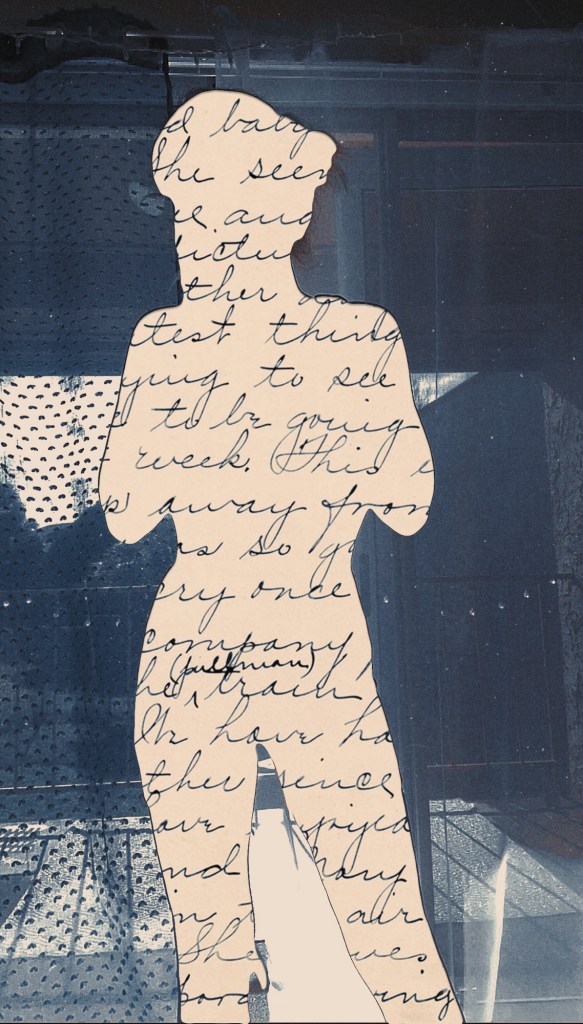 d baby
She seem
ve and
pictu
ther on
test thing
ying to see
e to be going
week. This i
s away from
as so g
cry once
company
(pullman)
he train
We have ha
ther since
ave njoyed
nd Mary
in t air
She ves
ing